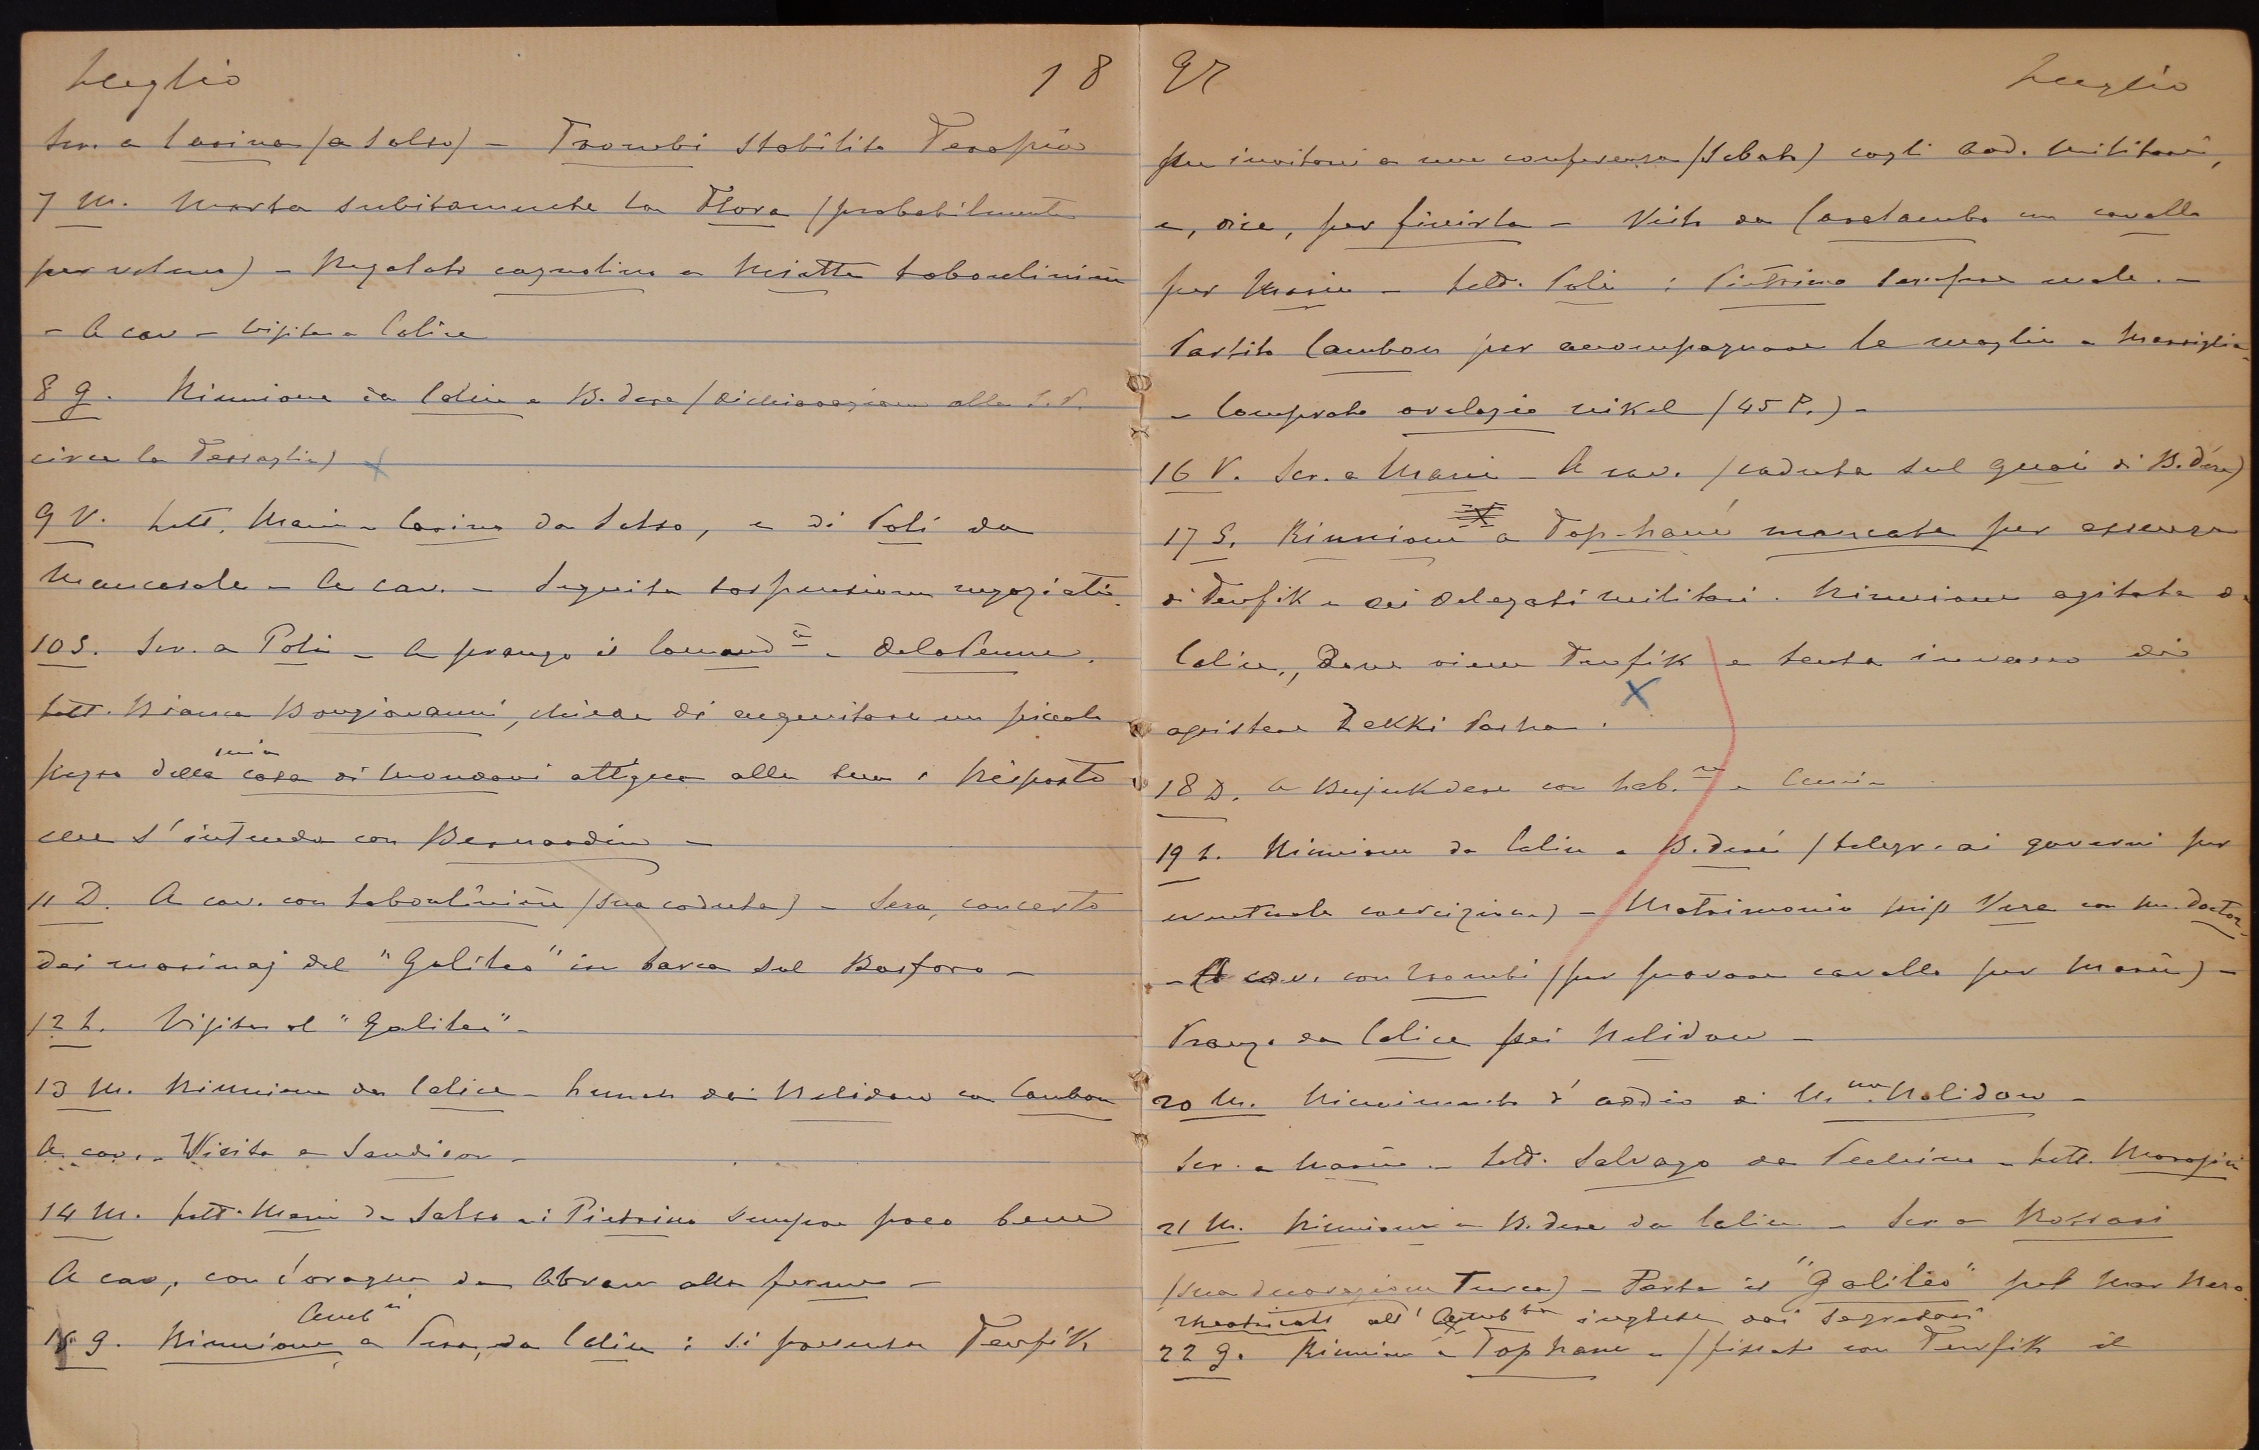 Luglio 18
Scr. a Carina (a Salso) - Trombi stabilito Terapia
7 M. Morta subitamente la Flora (probabilmente
per veleno) - Regalato cagnolino a Miatte Taboulinian
- A cav - Visita a Calice
8 G. Riunione da Calice a B. dere (dichiarazione alla S.P.
circa la Tessaglia) x
9 V. Lett. Marie e Carina da Salso, e di Poli da
Mancasale - A cav. - Seguita sospensione negoziati.
10 S. Scr. a Poli - A pranzo il Comand.te Dela Penne.
Lett. Bianca Bongiovanni, chiede di acquistare un piccolo
pezzo della mia casa di Mondovi attigua alla sua: Risposto
che s'intenda con Bernardin -
11 D. A cav. con Taboulinian (sua caduta) - Sera, concerto
dei marinaj del "Galileo" in barca sul Bosforo -
12 L. Visita al "Galileo" -
13 M. Riunione da Calice - Lunch dai Nelidow con Cambon
A cav. - Visita a Sandison -
14 M. Lett. Marie da Salso: Pietrino sempre poco bene
A cav. con da Abram alla ferme -
15 G. Riunione Amb.ri a Pera, da Calice: si presenta Tevfik
97 Luglio
per invitarci a una conferenza (Sabato) cogli Add. Militari,
e, dice, per finirla - Visto da un cavallo
per Marie - Lett. Poli: Pietrino sempre male. -
Partito Cambon per accompagnare la moglie a Marsiglia -
- Comprato orologio nikel (45 P.) -
16 V. Scr. a Marie - A cav. (caduta sul quai di B. dere)
17 S. Riunione a Top-hané mancata per assenza
di Tevfik e dei delegati militari. Riunione agitata da
Calice, dove viene Tevfik e tenta invano di
assistere Zekki Pasha. x
18 D. A Bujukdere con
19 L. Riunione da Calice a B. deré (telegr. ai governi per
eventuale coercizione) - Matrimonio Vera con M. Doctor
- A cav. con Trombi (per provare cavallo per Marie) -
Pranz. da Calice pei Nelidow -
20 M. Ricevimento d'addio di M.me Nelidow -
Scr. a Marie - Lett. Salvago da Pechino - Lett.
21 M. Riunione a B. dere da Calice - Scr. a Rossari
(sua decorazione Turca) - Parte il "Galileo" pel Mar Nero.
all'Amb.ta inglese dai Segretari
22 G. Riunione a Top hane - (fissato con Tewfik il